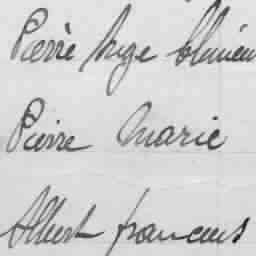 Pierre Ange
Pierre Marie
Albert francois